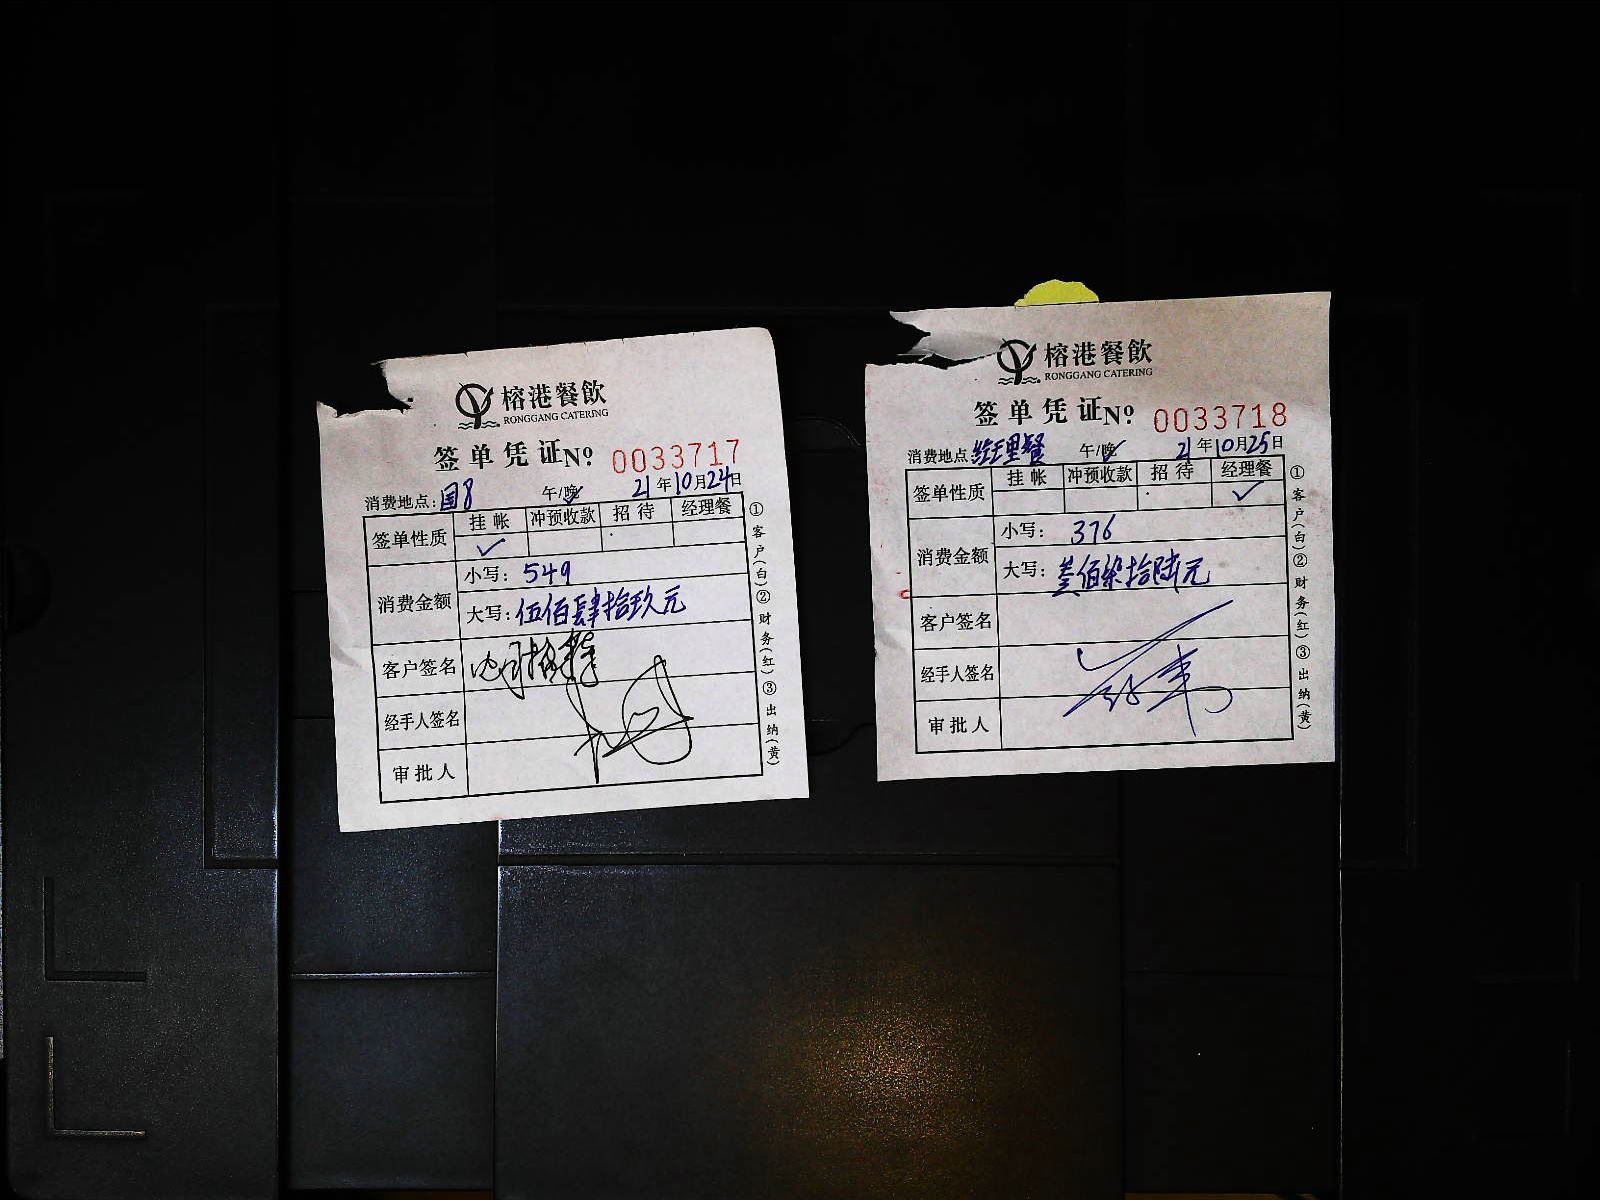 榕港餐飲
RONGGANG CATERING
签单凭证No. 0033717
消费地点:国8 午/晚 21年10月24日
签单性质 挂帐 冲预收款 招待 经理餐
✓
消费金额
小写: 549
大写: 伍佰肆拾玖元
客户签名
经手人签名
审批人
①客户(白)②财务(红)③出纳(黄)
榕港餐飲
RONGGANG CATERING
签单凭证No. 0033718
消费地点:经理餐 午/晚 21年10月25日
签单性质 挂帐 冲预收款 招待 经理餐
✓
消费金额
小写: 376
大写: 叁佰柒拾陆元
客户签名
经手人签名
审批人
①客户(白)②财务(红)③出纳(黄)